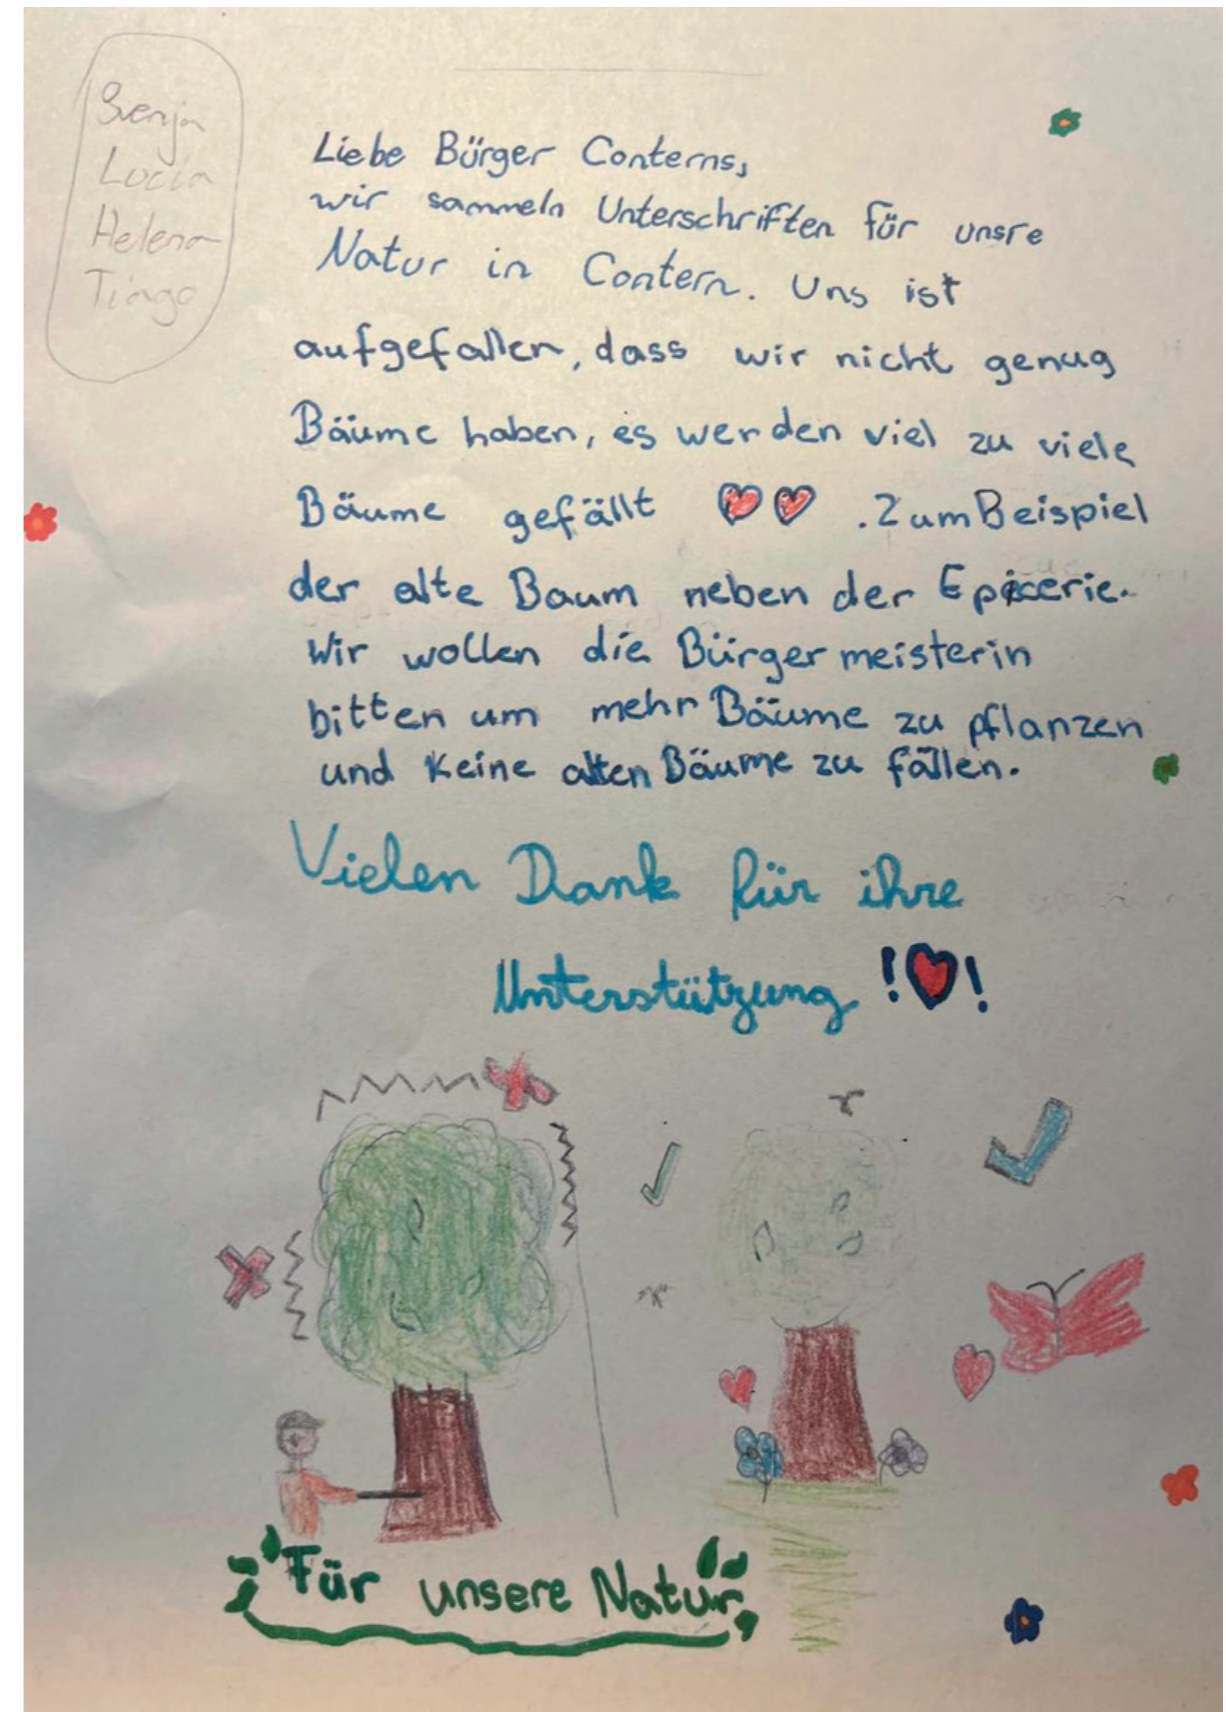 Svenja
Lucia
Helena
Tiago
Liebe Bürger Conterns,
wir sammeln Unterschriften für unsre
Natur in Contern. Uns ist
aufgefallen, dass wir nicht genug
Bäume haben, es werden viel zu viele
Bäume gefällt ♥♥ . Zum Beispiel
der alte Baum neben der Epicerie.
Wir wollen die Bürgermeisterin
bitten um mehr Bäume zu pflanzen
und keine alten Bäume zu fällen.
Vielen Dank für ihre
Unterstützung !♥!
Für unsere Natur